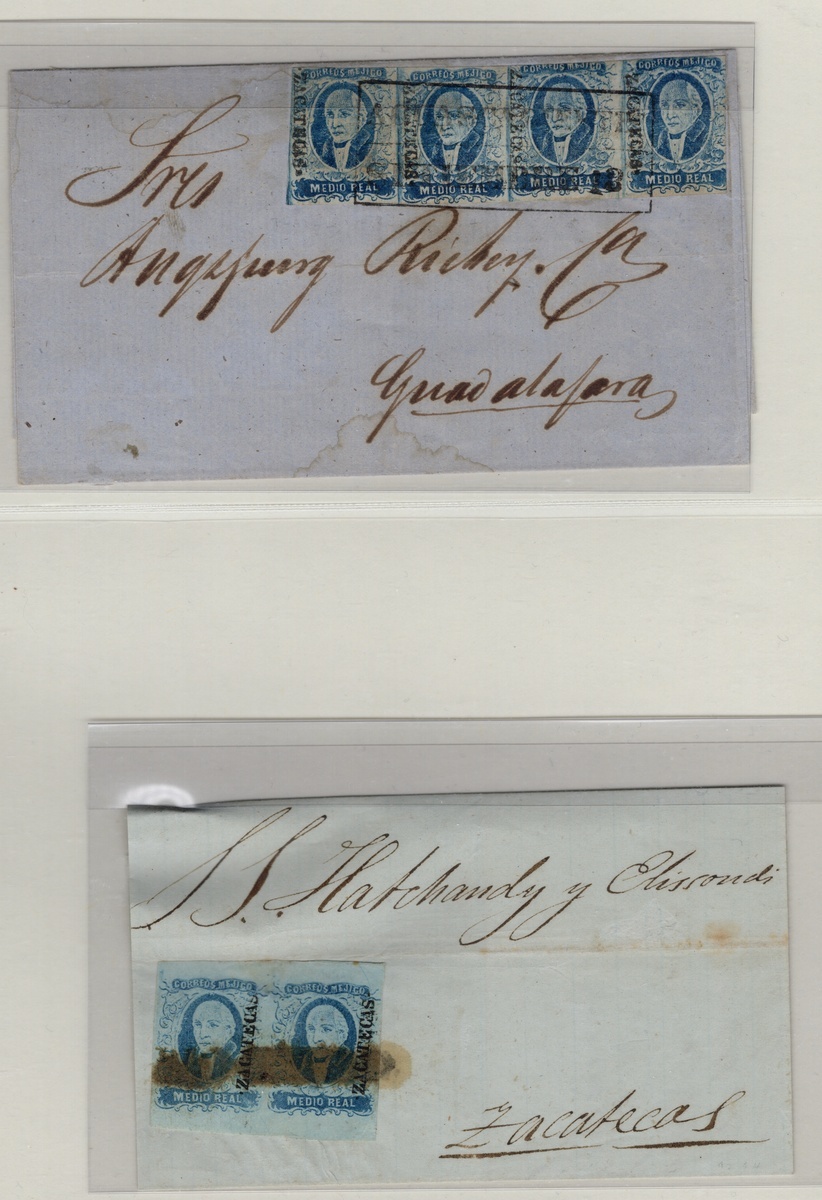 CORREOS MEJICO CORREOS MEJICO CORREOS MEJICO CORREOS MEJICO
ZACATECAS ZACATECAS ZACATECAS ZACATECAS
MEDIO REAL MEDIO REAL MEDIO REAL MEDIO REAL
Sres
Augspurg Richey. Ca
Guadalajara
S. S. Hatchandy y Elissondi
CORREOS MEJICO CORREOS MEJICO
ZACATECAS ZACATECAS
MEDIO REAL MEDIO REAL
Zacatecas